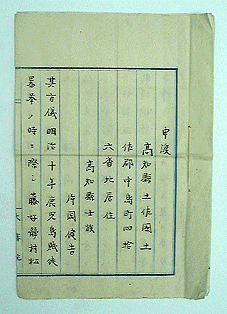 申渡
高知縣土佐國土
佐郡中島町四拾
六番地居住
高知縣士族
片岡健吉
其方儀明治十年鹿児島賊徒
暴挙ノ時ニ際シ藤好静村松